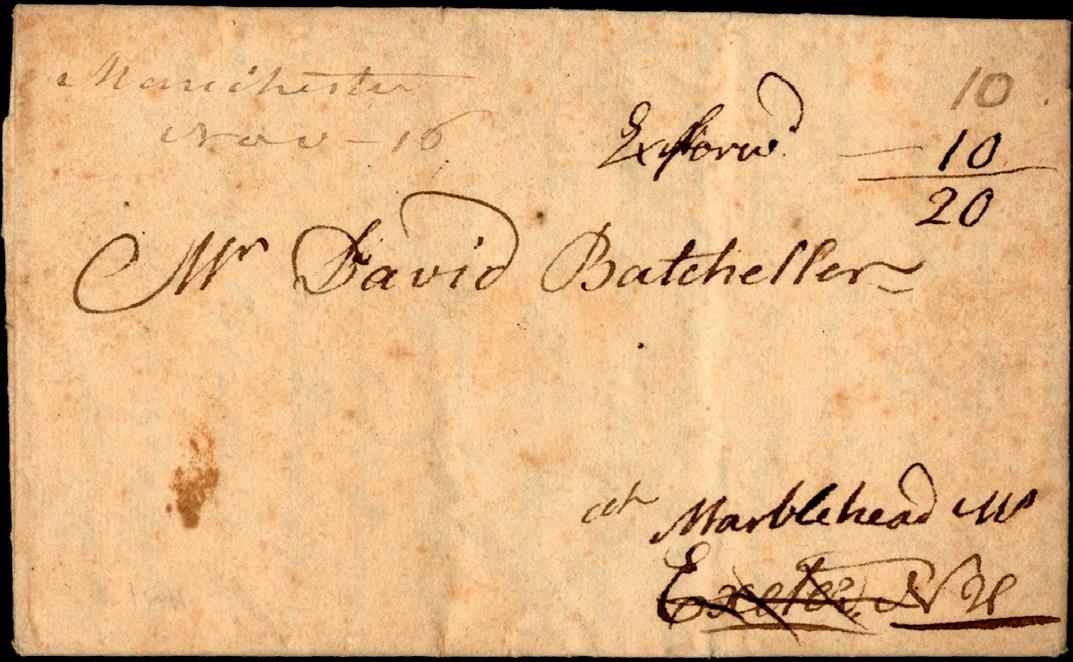 Manchester
Nov - 16
10
Ex forwd
10
20
Mr David Batcheller
at Marblehead Ms
Exeter, N H